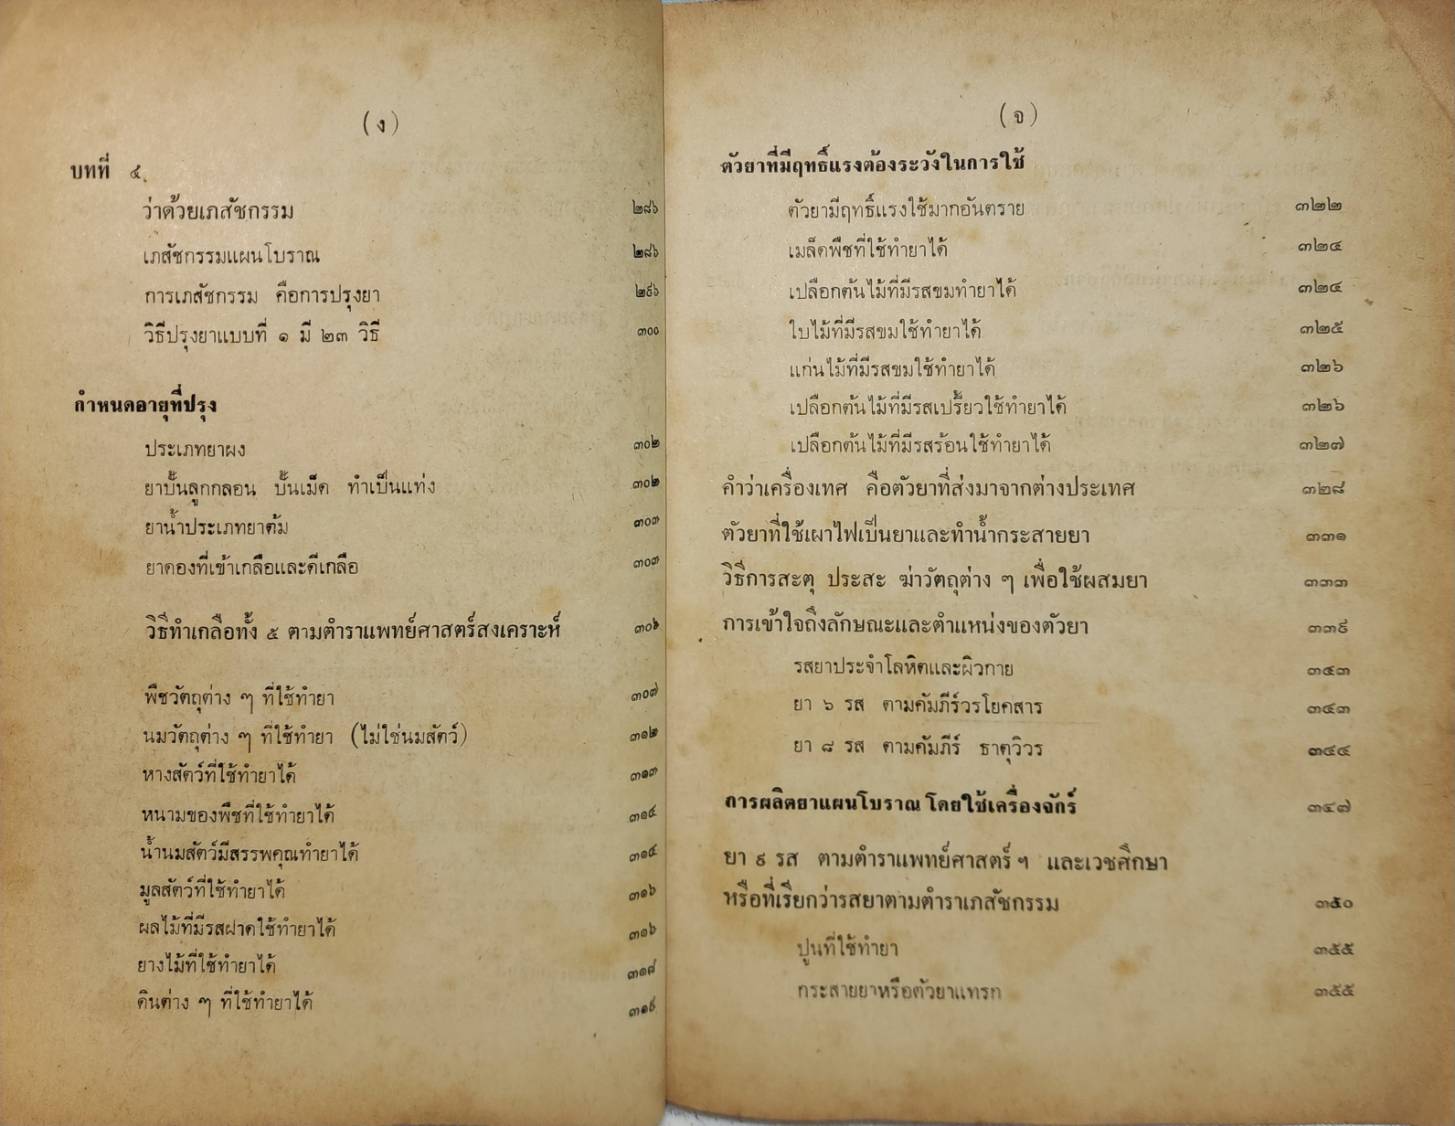 (ง)
บทที่ ๔
ว่าด้วยเภสัชกรรม ๒๘๖
เภสัชกรรมแผนโบราณ ๒๘๖
การเภสัชกรรม คือการปรุงยา ๒๙๖
วิธีปรุงยาแบบที่ ๑ มี ๒๓ วิธี ๓๐๐
กำหนดอายุที่ปรุง
ประเภทยาผง ๓๐๒
ยาปั้นลูกกลอน ปั้นเม็ด ทำเป็นแท่ง ๓๐๒
ยาน้ำประเภทยาต้ม ๓๐๓
ยาดองที่เข้าเกลือและดีเกลือ ๓๐๓
วิธีทำเกลือทั้ง ๕ ตามตำราแพทย์ศาสตร์สงเคราะห์ ๓๐๖
พืชวัตถุต่าง ๆ ที่ใช้ทำยา ๓๐๗
นมวัตถุต่าง ๆ ที่ใช้ทำยา (ไม่ใช่นมสัตว์) ๓๑๒
หางสัตว์ที่ใช้ทำยาได้ ๓๑๓
หนามของพืชที่ใช้ทำยาได้ ๓๑๔
น้ำนมสัตว์มีสรรพคุณทำยาได้ ๓๑๔
มูลสัตว์ที่ใช้ทำยาได้ ๓๑๖
ผลไม้ที่มีรสฝาดใช้ทำยาได้ ๓๑๖
ยางไม้ที่ใช้ทำยาได้ ๓๑๘
ดินต่าง ๆ ที่ใช้ทำยาได้ ๓๑๙
(จ)
ตัวยาที่มีฤทธิ์แรงต้องระวังในการใช้
ตัวยามีฤทธิ์แรงใช้มากอันตราย ๓๒๒
เมล็ดพืชที่ใช้ทำยาได้ ๓๒๔
เปลือกต้นไม้ที่มีรสขมทำยาได้ ๓๒๔
ใบไม้ที่มีรสขมใช้ทำยาได้ ๓๒๕
แก่นไม้ที่มีรสขมใช้ทำยาได้ ๓๒๖
เปลือกต้นไม้ที่มีรสเปรี้ยวใช้ทำยาได้ ๓๒๖
เปลือกต้นไม้ที่มีรสร้อนใช้ทำยาได้ ๓๒๗
คำว่าเครื่องเทศ คือตัวยาที่ส่งมาจากต่างประเทศ ๓๒๘
ตัวยาที่ใช้เผาไฟเป็นยาและทำน้ำกระสายยา ๓๓๑
วิธีการสะตุ ประสะ ฆ่าวัตถุต่าง ๆ เพื่อใช้ผสมยา ๓๓๓
การเข้าใจถึงลักษณะและตำแหน่งของตัวยา ๓๓๙
รสยาประจำโลหิตและผิวกาย ๓๔๓
ยา ๖ รส ตามคัมภีร์วรโยคสาร ๓๔๓
ยา ๘ รส ตามคัมภีร์ ธาตุวิวร ๓๔๔
การผลิตยาแผนโบราณ โดยใช้เครื่องจักร์ ๓๔๗
ยา ๙ รส ตามตำราแพทย์ศาสตร์ ฯ และเวชศึกษา
หรือที่เรียกว่ารสยาตามตำราเภสัชกรรม ๓๕๐
ปูนที่ใช้ทำยา ๓๕๕
กระสายยาหรือตัวยาแทรก ๓๕๕